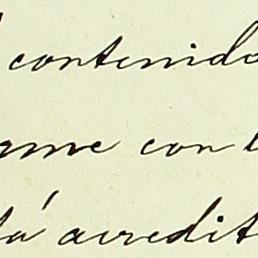 contenido
rme con l
tá acredit